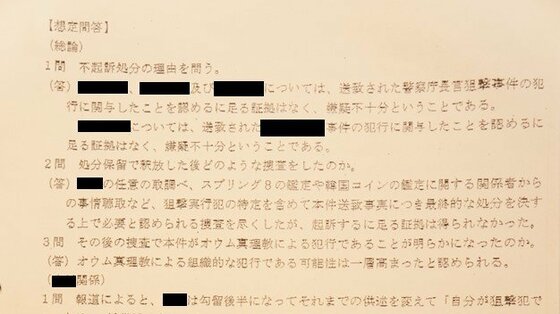 【想定問答】
（総論）
1問 不起訴処分の理由を問う。
（答） 、 及び については、送致された警察庁長官狙撃事件の犯
行に関与したことを認めるに足る証拠はなく、嫌疑不十分ということである。
については、送致された 事件の犯行に関与したことを認めるに
足る証拠はなく、嫌疑不十分ということである。
2問 処分保留で釈放した後どのような捜査をしたのか。
（答） の任意の取調べ、スプリング8の鑑定や韓国コインの鑑定に関する関係者から
の事情聴取など、狙撃実行犯の特定を含めて本件送致事実につき最終的な処分を決す
る上で必要と認められる捜査を尽くしたが、起訴するに足る証拠は得られなかった。
3問 その後の捜査で本件がオウム真理教による犯行であることが明らかになったのか。
（答） オウム真理教による組織的な犯行である可能性は一層高まったと認められる。
（ 関係）
1問 報道によると、 は勾留後半になってそれまでの供述を変えて「自分が狙撃犯で